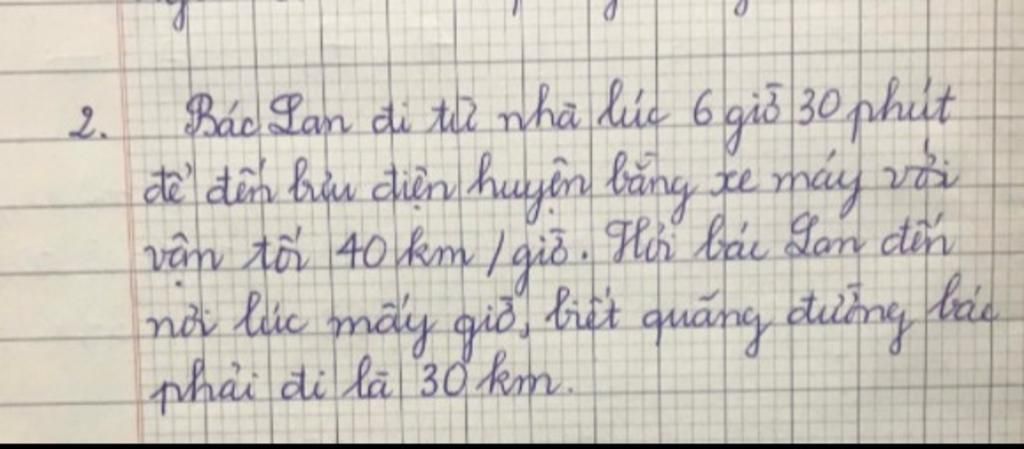 2. Bác Lan đi từ nhà lúc 6 giờ 30 phút
để đến bưu điện huyện bằng xe máy với
vận tốc 40 km/giờ. Hỏi bác Lan đến
nơi lúc mấy giờ, biết quãng đường bác
phải đi là 30 km.